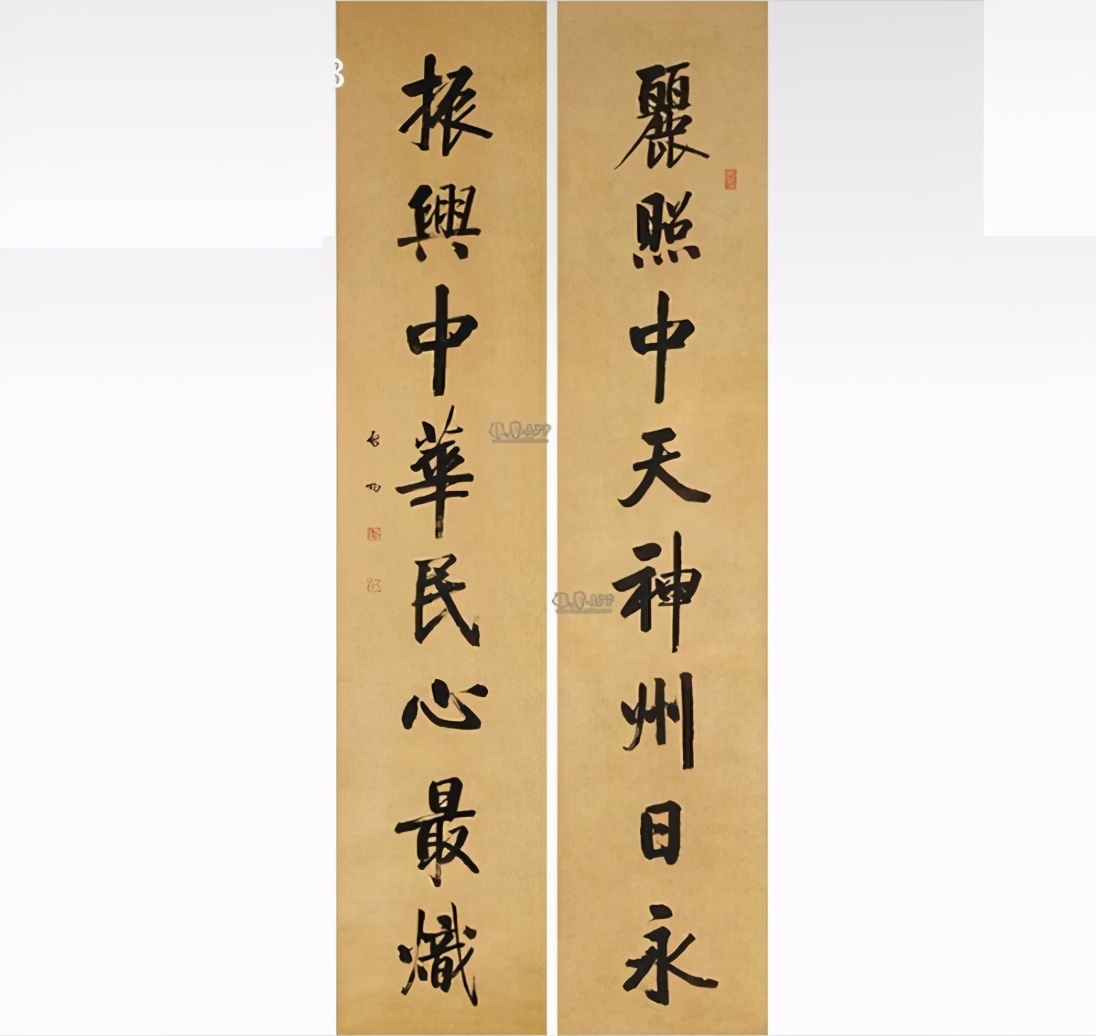 麗照中天神州日永
振興中華民心最熾
啓功